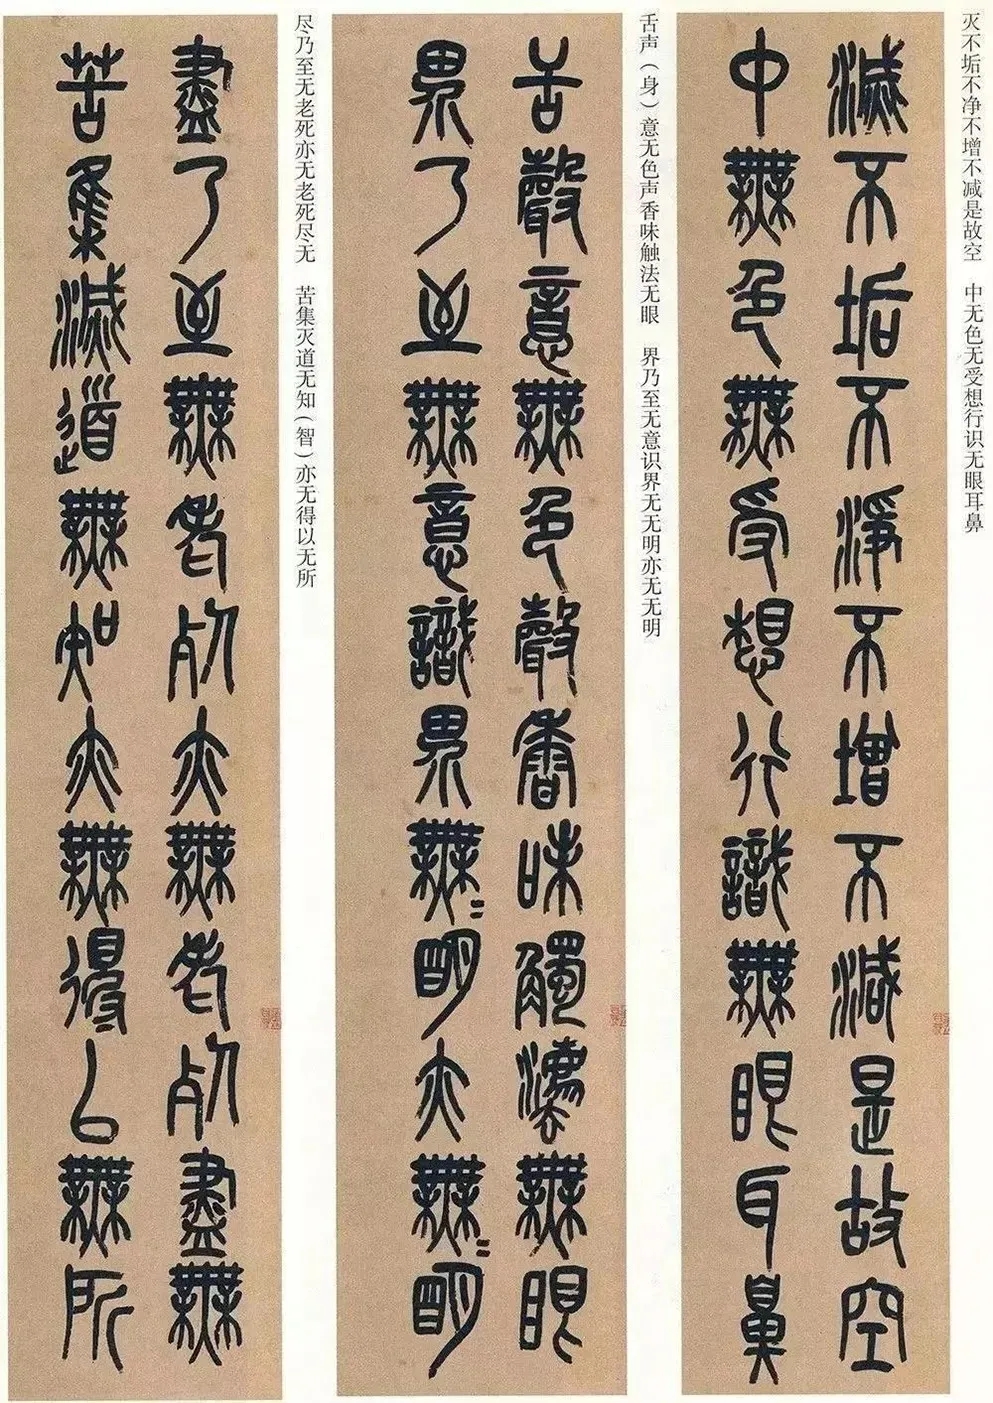 灭不垢不净不增不减是故空　中无色无受想行识无眼耳鼻
滅不垢不淨不增不減是故空
中無色無受想行識無眼耳鼻
舌声（身）意无色声香味触法无眼　界乃至无意识界无无明亦无无明
舌聲意無色聲香味觸灋無眼
界乃至無意識界無〻明亦無〻明
尽乃至无老死亦无老死尽无　苦集灭道无知（智）亦无得以无所
盡乃至無老死亦無老死盡無
苦集滅道無知亦無得以無所